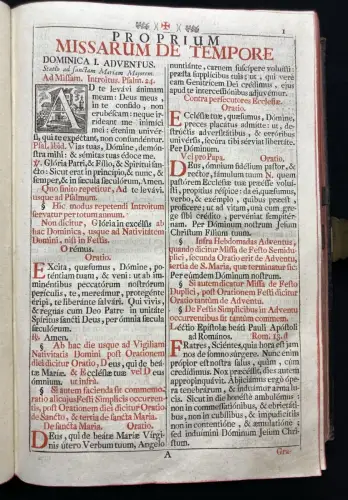 1
PROPRIUM
MISSARUM DE TEMPORE
DOMINICA I. ADVENTUS.
Statio ad sanctam Mariam Majorem.
Ad Missam. Introitus. Psalm. 24.
AD te levávi ánimam
meam: Deus meus,
in te confído, non
erubéscam: neque ir-
rídeant me inimíci
mei: étenim univér-
si, qui te expéctant, non confundéntur.
Psal. ibid. Vias tuas, Dómine, demón-
stra mihi: & sémitas tuas édoce me.
℣. Glória Patri, & Fílio, & Spirítui san-
cto: Sicut erat in princípio, & nunc, &
semper, & in sǽcula sæculórum, Amen.
Quo finito repetitur, Ad te levávi,
usque ad Psalmum.
§ Hic modus repetendi Introitum
servatur per totum annum.
Non dicitur, Glória in excélsis ab
hac Dominica, usque ad Nativitatem
Domini, nisi in Festis.
Orémus.
Oratio.
EXcita, quǽsumus, Dómine, po-
téntiam tuam, & veni: ut ab im-
minéntibus peccatórum nostrórum
perículis, te, mereámur, protegénte
éripi, te liberánte salvári. Qui vivis,
& regnas cum Deo Patre in unitáte
Spíritus sancti Deus, per ómnia sécula
sæculórum.
℟. Amen.
§ Ab hac die usque ad Vigiliam
Nativitatis Domini post Orationem
diei dicitur Oratio, Deus, qui de beá-
tæ Maríæ. & Ecclésiæ tuæ vel Deus
ómnium. ut infra.
§ Si autem facienda sit commemo-
ratio alicujus Festi Simplicis occurren-
tis, post Orationem diei dicitur Oratio
de Sancto, & tertia de sancta Maria.
De sancta Maria. Oratio.
DEus, qui de beátæ Maríæ Vírgi-
nis útero Verbum tuum, Angelo
nuntiánte, carnem suscípere voluísti:
præsta supplícibus tuis; ut, qui vere
eam Genitrícem Dei crédimus, ejus
apud te intercessiónibus adjuvémur.
Contra persecutores Ecclesiæ.
Oratio.
ECclésiæ tuæ, quǽsumus, Dómine,
preces placátus admítte: ut, de-
strúctis adversitátibus, & erróribus
univérsis, secúra tibi sérviat libertáte.
Per Dóminum.
Vel pro Papa. Oratio.
DEus, ómnium fidélium pastor, &
rector, fámulum tuum N. quem
pastórem Ecclésiæ tuæ præésse volu-
ísti, propítius réspice: da ei, quǽsumus,
verbo, & exémplo, quibus præest,
profícere; ut ad vitam, una cum gre-
ge sibi crédito, pervéniat sempitér-
nam. Per Dóminum nostrum Jesum
Christum Fílium tuum.
§ Infra Hebdomadas Adventus,
quando dicitur Missa de Festo Semidu-
plici, secunda Oratio erit de Adventu,
tertia de S. Maria, quæ terminatur sic:
Per eúmdem Dóminum nostrum.
§ Si autem dicatur Missa de Festo
Duplici, post Orationem Festi dicitur
Oratio tantùm de Adventu.
§ De Festis Simplicibus in Adventu
occurrentibus fit tantùm commem.
Léctio Epístolæ beáti Pauli Apóstoli
ad Romános. Rom. 13. d
FRatres, Sciéntes, quia hora est jam
nos de somno súrgere. Nunc enim
própior est nostra salus, quàm, cùm
credídimus. Nox præcéssit, dies autem
appropinquávit. Abjiciámus ergò ópe-
ra tenebrárum, & induámur arma lu-
cis. Sicut in die honéstè ambulémus:
non in comessatiónibus, & ebrietáti-
bus, non in cubílibus, & impudicítiis
non in contentióne, & æmulatióne:
sed induímini Dóminum Jesum Chri-
stum.
A
Gra-